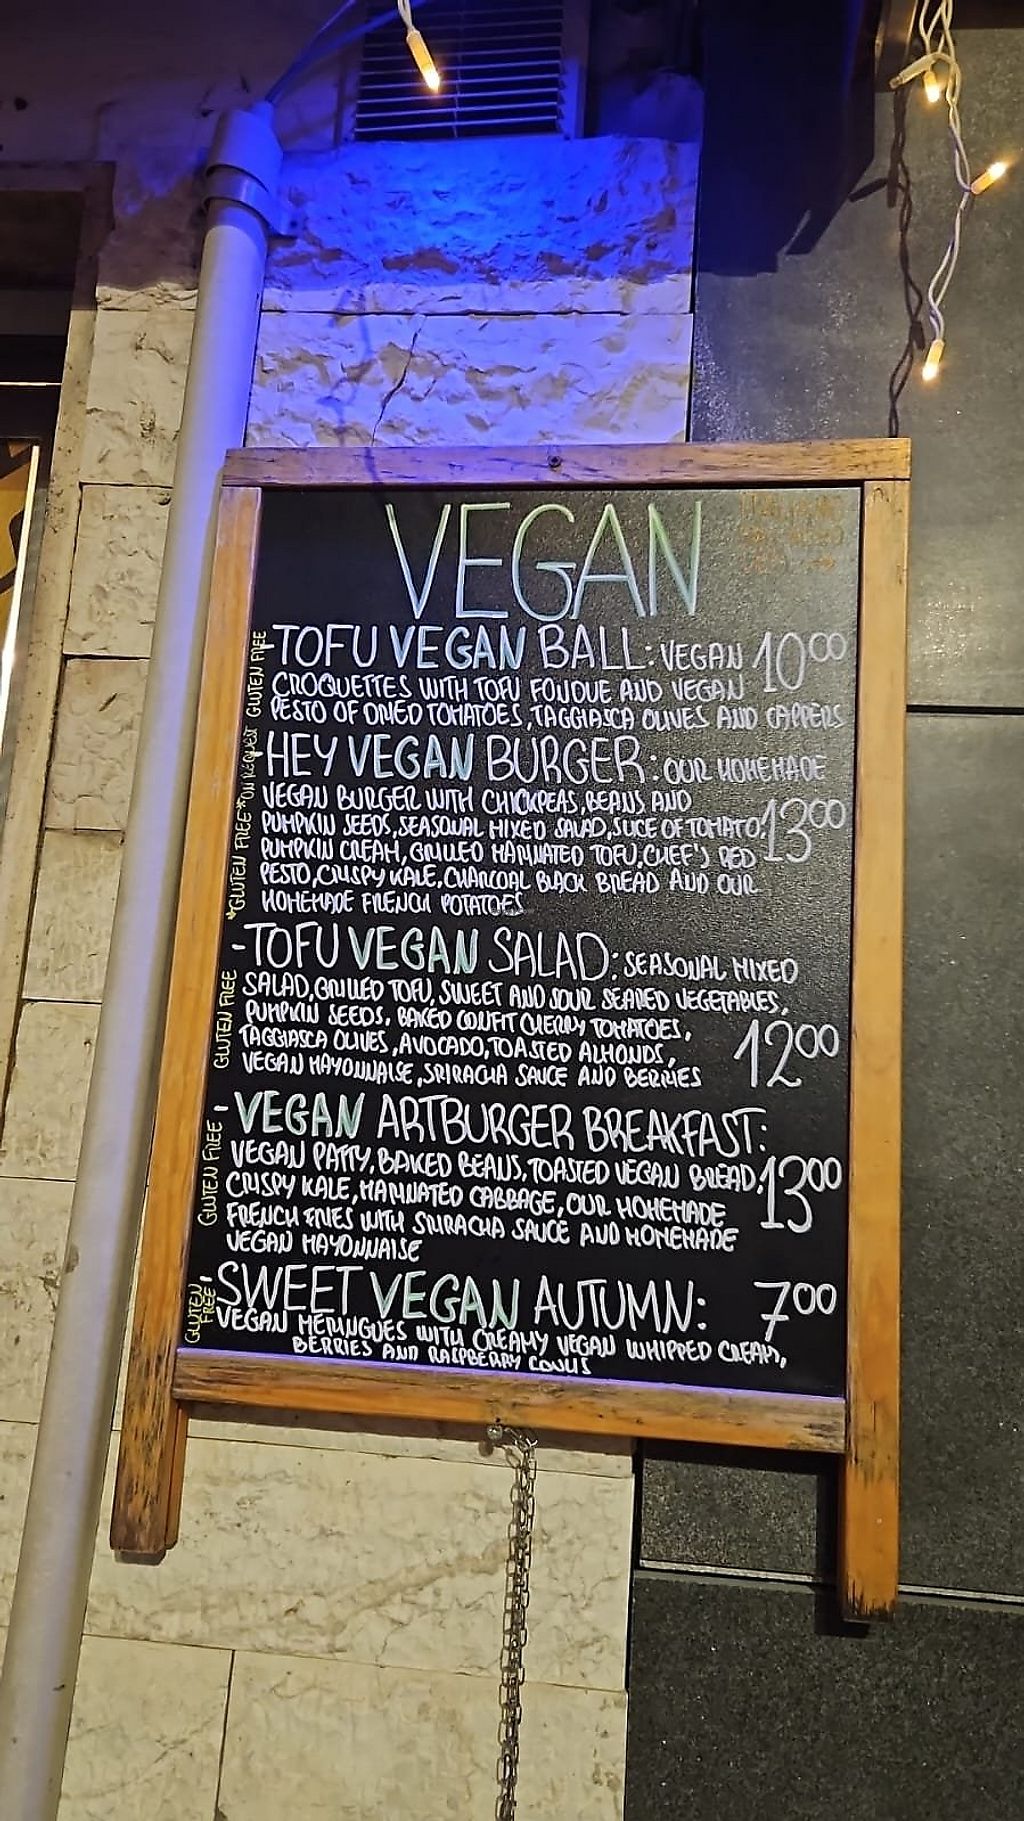 VEGAN
GLUTEN FREE
-TOFU VEGAN BALL: VEGAN 1000
CROQUETTES WITH TOFU FONDUE AND VEGAN
PESTO OF DRIED TOMATOES, TAGGIASCA OLIVES AND CAPPERS
*GLUTEN FREE* *ON REQUEST
-HEY VEGAN BURGER: OUR HOMEMADE
VEGAN BURGER WITH CHICKPEAS, BEANS AND
PUMPKIN SEEDS, SEASONAL MIXED SALAD, SLICE OF TOMATO, 1300
PUMPKIN CREAM, GRILLED MARINATED TOFU, CHEF'S RED
PESTO, CRISPY KALE, CHARCOAL BLACK BREAD AND OUR
HOMEMADE FRENCH POTATOES
GLUTEN FREE
-TOFU VEGAN SALAD: SEASONAL MIXED
SALAD, GRILLED TOFU, SWEET AND SOUR SEARED VEGETABLES,
PUMPKIN SEEDS, BAKED CONFIT CHERRY TOMATOES,
TAGGIASCA OLIVES, AVOCADO, TOASTED ALMONDS, 1200
VEGAN MAYONNAISE, SRIRACHA SAUCE AND BERRIES
GLUTEN FREE
-VEGAN ARTBURGER BREAKFAST:
VEGAN PATTY, BAKED BEANS, TOASTED VEGAN BREAD, 1300
CRISPY KALE, MARINATED CABBAGE, OUR HOMEMADE
FRENCH FRIES WITH SRIRACHA SAUCE AND HOMEMADE
VEGAN MAYONNAISE
GLUTEN FREE
-SWEET VEGAN AUTUMN: 700
VEGAN MERINGUES WITH CREAMY VEGAN WHIPPED CREAM,
BERRIES AND RASPBERRY COULIS